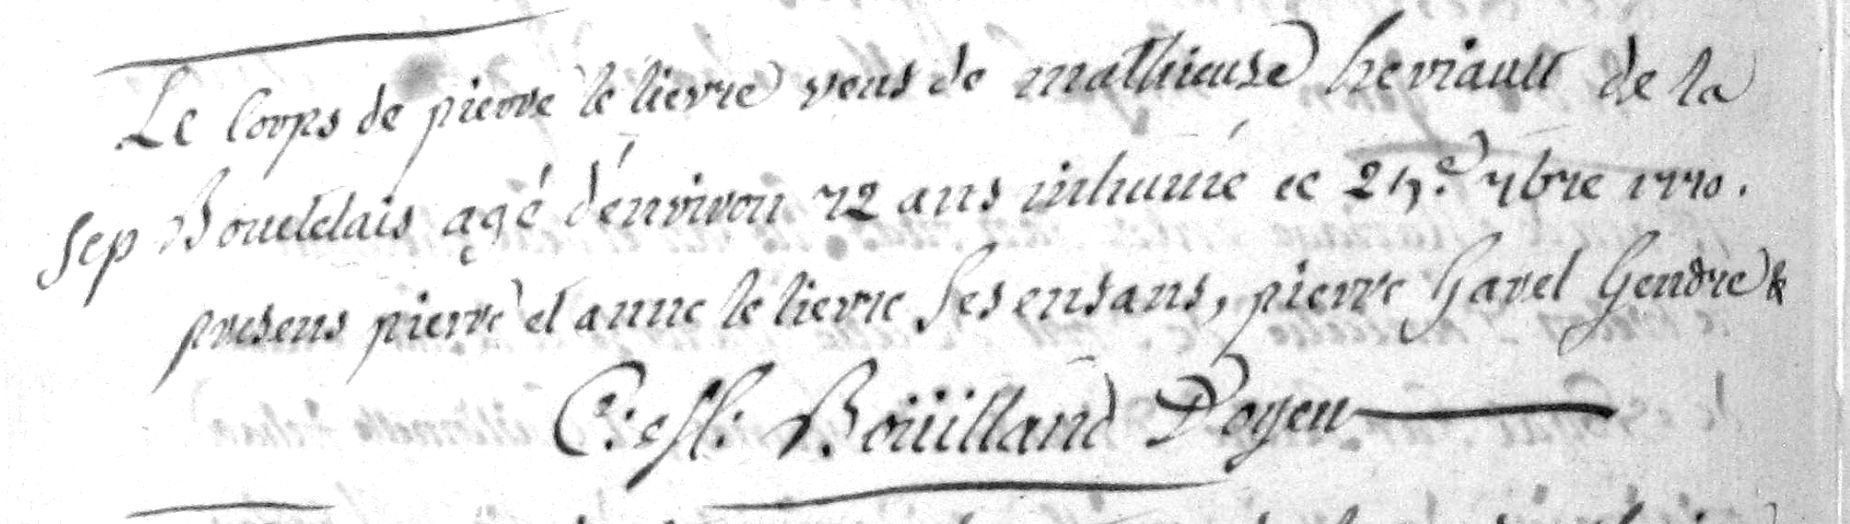 Le Corps de pierre le lievre veuf de mathieuse heriault de la
Sep Bouetelais agé d'environ 72 ans inhumé ce 24.e 7bre 1770.
presens pierre et anne le lievre ses enfans, pierre Garel Gendre &
Boüilland Doyen